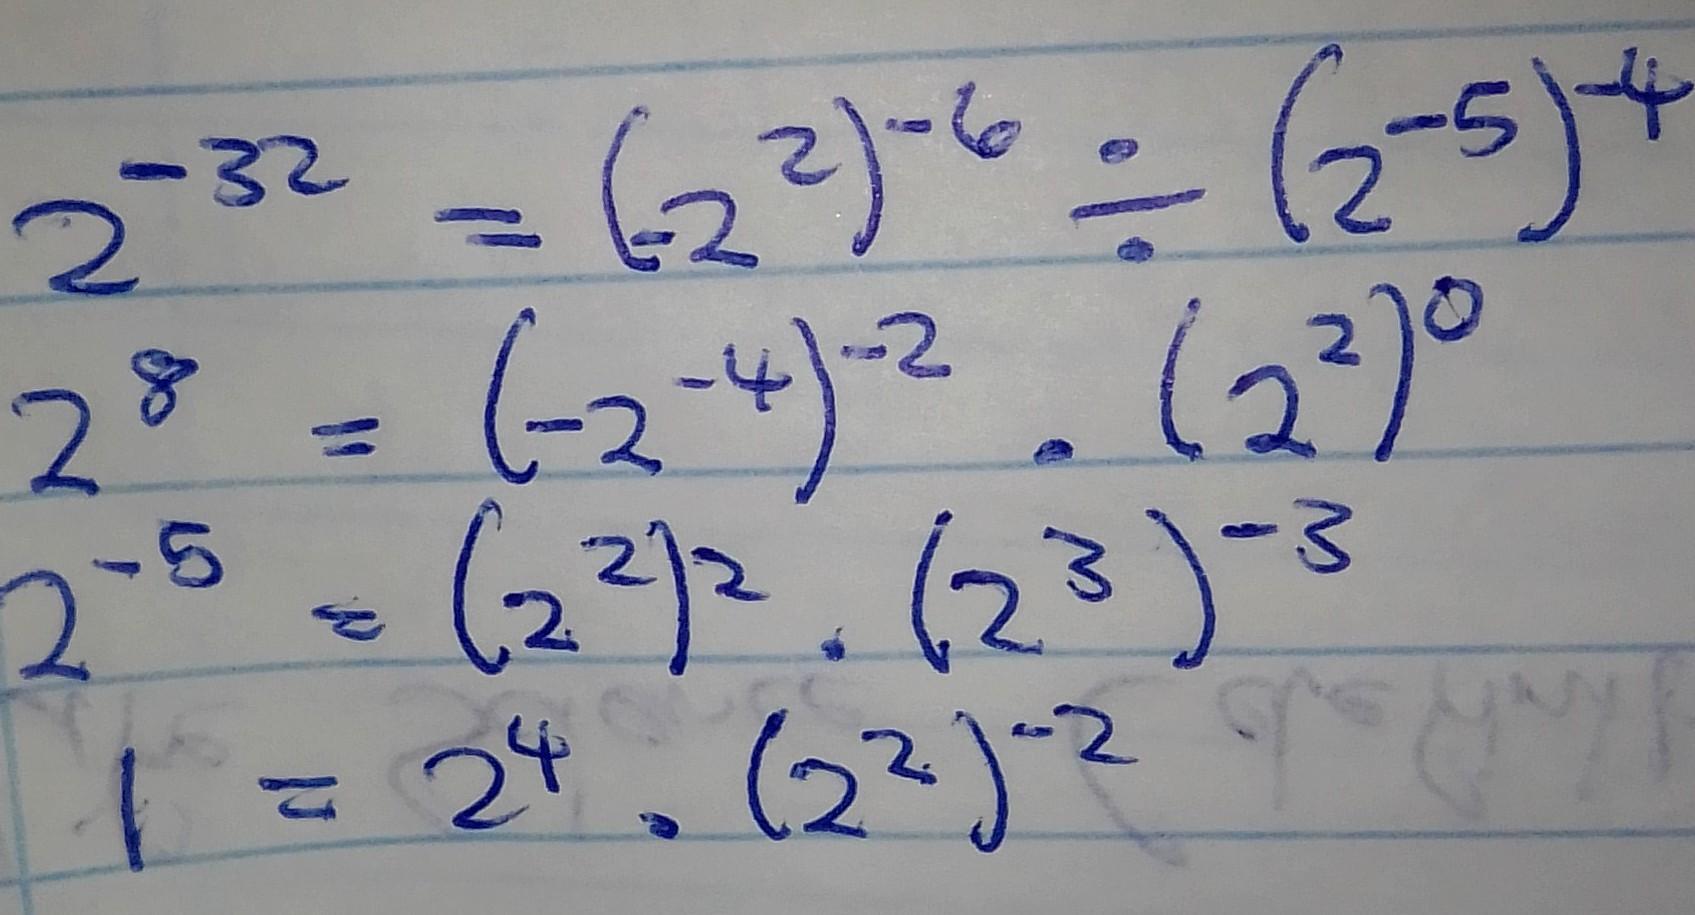 2⁻³² = (-2²)⁻⁶ ÷ (2⁻⁵)⁻⁴
2⁸ = (-2⁻⁴)⁻² . (2²)⁰
2⁻⁵ = (2²)² . (2³)⁻³
1 = 2⁴ . (2²)⁻²